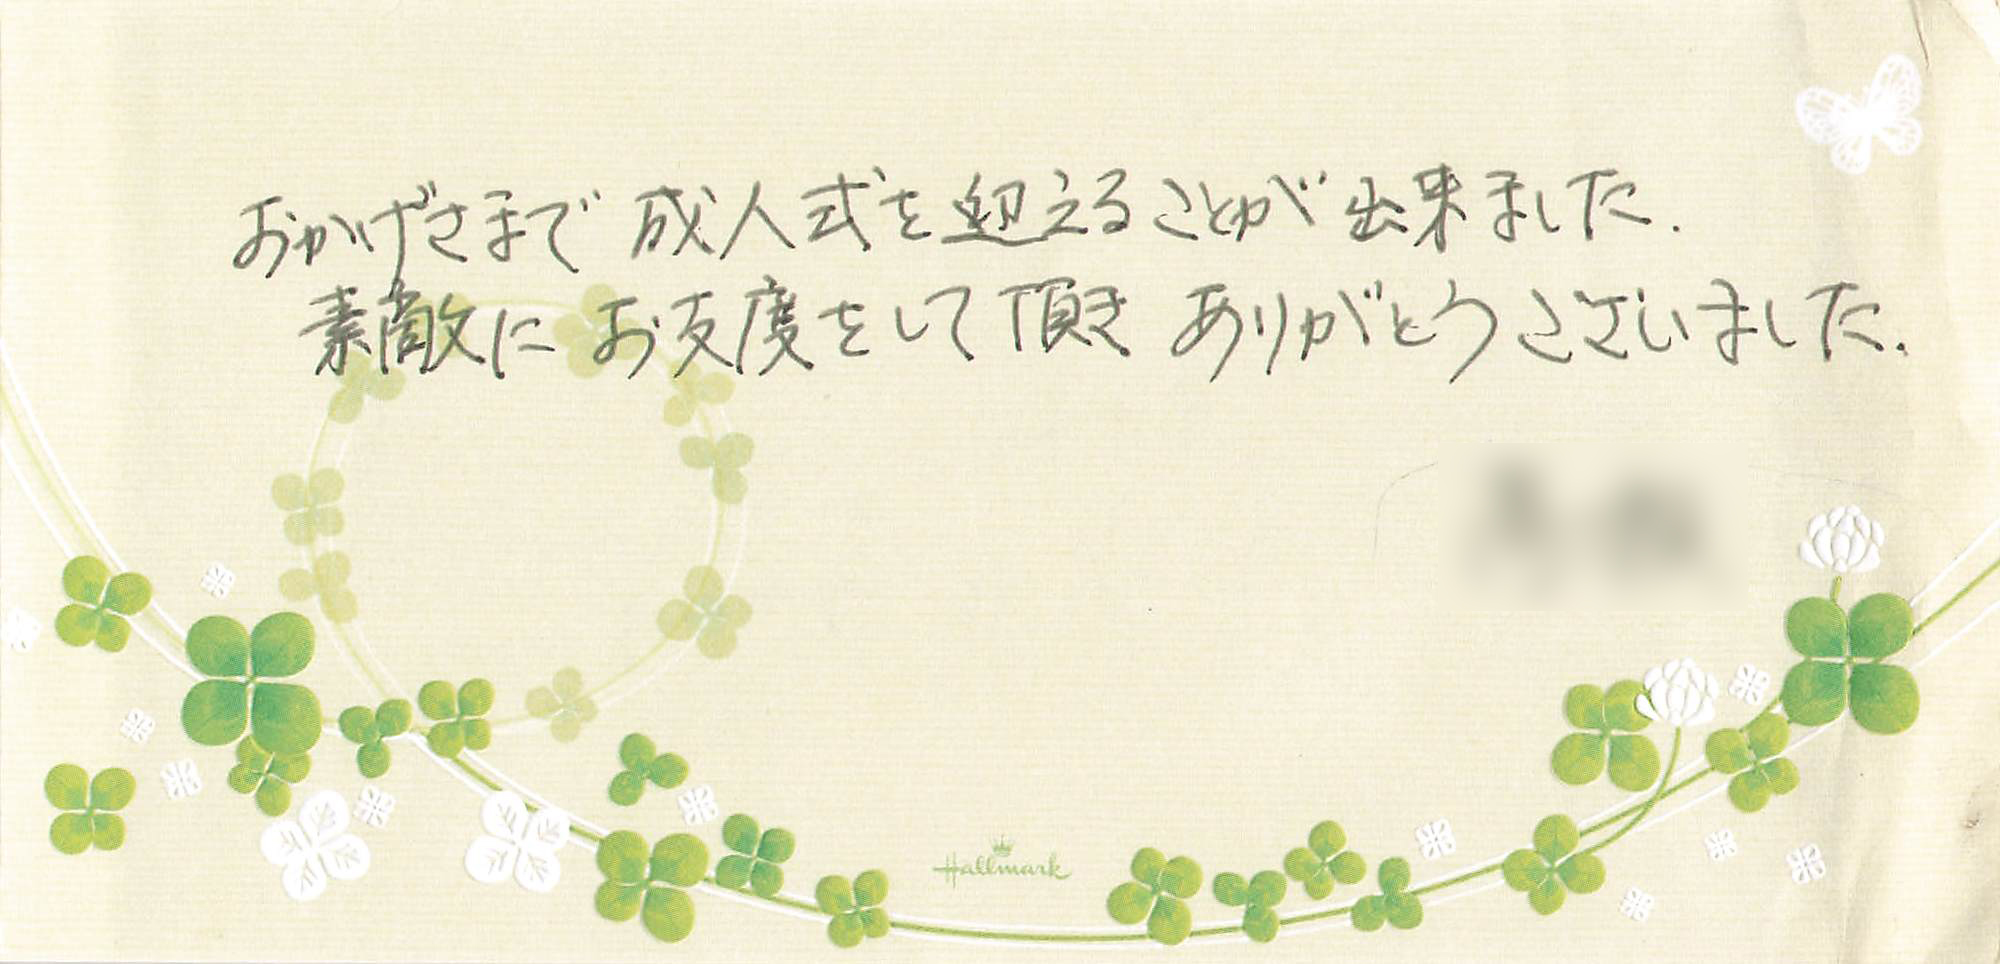 おかげさまで 成人式を迎えることが出来ました.
素敵に お支度をして頂き ありがとうございました.
Hallmark